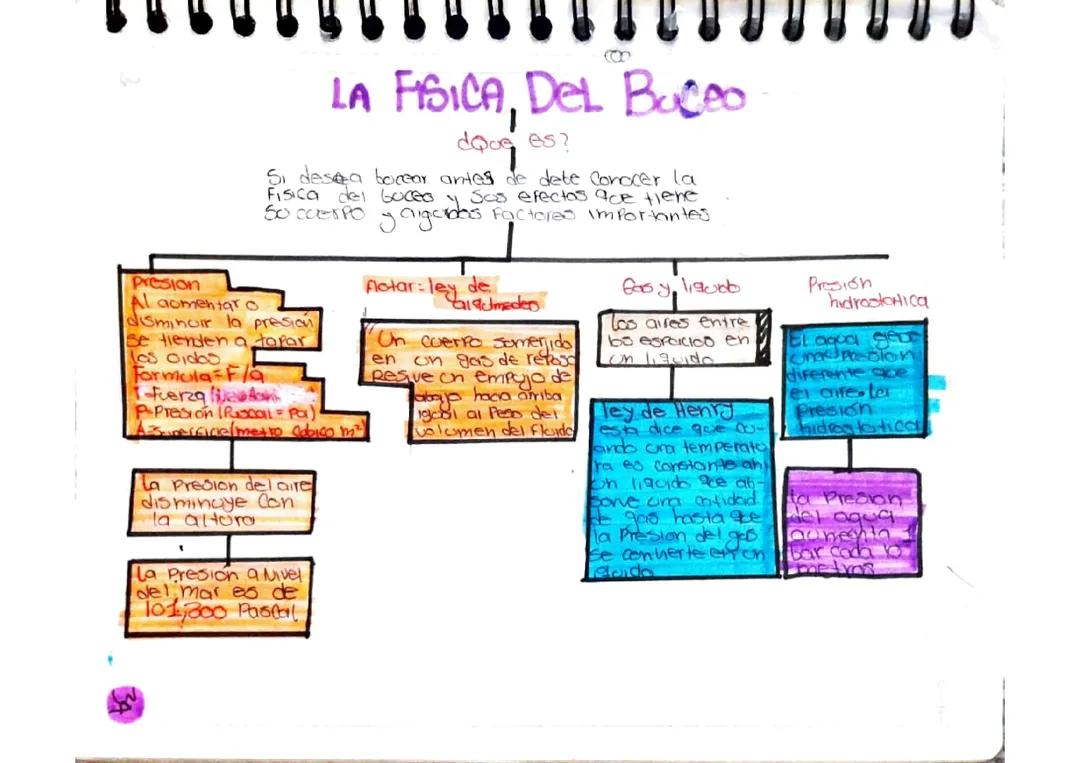 LA FISICA DEL BUCEO
¿Que es?
Si desea bocear antes de dete conocer la
Fisica del buceo y sus efectos que tiene
su cuerpo y algunos Factores importantes
presion
Al aomentar o
disminuir la presion
se tienden a tapar
los oidos
Formula = F/a
F-fuerza
P-Presion (Pascal = Pa)
A-Superficie (metro cobico m²)
La presion del aire
disminuye con
la altura
La Presion a Nivel
del mar es de
101,300 Pascal
Flotar = ley de
arquimedes
Un cuerpo somerjido
en un gas de reposo
Resive un empujo de
abajo hacia arriba
igual al Peso del
volumen del fluido
Gas y liquido
los aires entre
los espacios en
un liquido
ley de Henry
esta dice que cu-
ando una temperato
ra es constante ahi
un liquido que ab-
sorve una cantidad
de gas hasta que
la Presion del gas
se convierte en un
liquido
Presión
hidrostatica
El agua ejerce
una presion
diferente que
el aire. la
Presión
hidrostatica
La Presion
del agua
aumenta 1
bar cada 10
metros